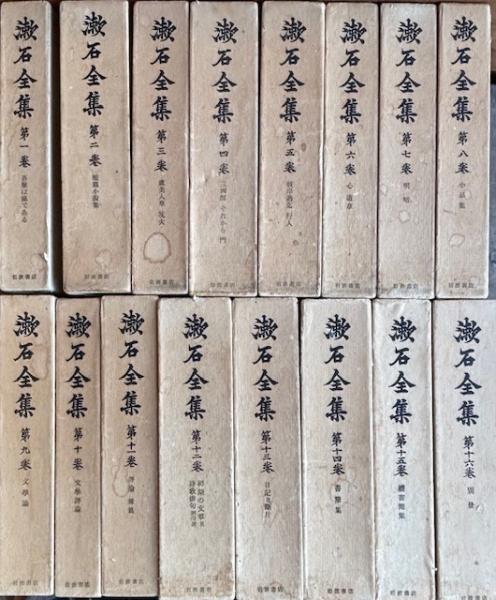 漱石全集 第一巻 吾輩は猫である 岩波書店
漱石全集 第二巻 短篇小説集 岩波書店
漱石全集 第三巻 虞美人草 坑夫 岩波書店
漱石全集 第四巻 三四郎 それから 門 岩波書店
漱石全集 第五巻 彼岸過迄 行人 岩波書店
漱石全集 第六巻 心 道草 岩波書店
漱石全集 第七巻 明暗 岩波書店
漱石全集 第八巻 小品集 岩波書店
漱石全集 第九巻 文學論 岩波書店
漱石全集 第十巻 文學評論 岩波書店
漱石全集 第十一巻 評論 雜篇 岩波書店
漱石全集 第十二巻 初期の文章及 詩歌俳句 岩波書店
漱石全集 第十三巻 日記及斷片 岩波書店
漱石全集 第十四巻 書簡集 岩波書店
漱石全集 第十五巻 續書簡集 岩波書店
漱石全集 第十六巻 別册 岩波書店